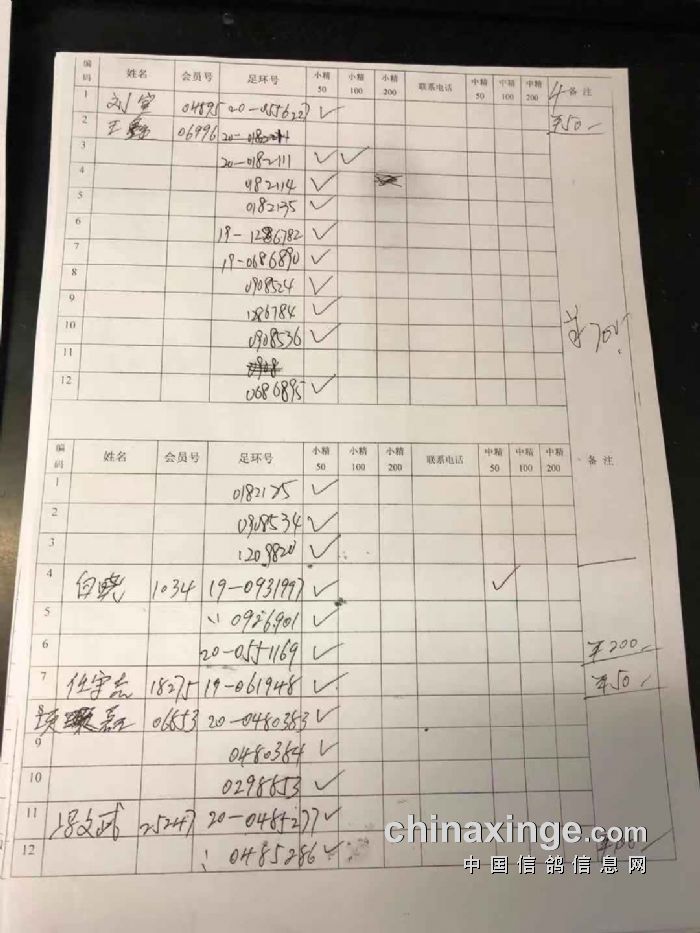 编码 姓名 会员号 足环号 小精50 小精100 小精200 联系电话 中精50 中精100 中精200 备注
1 04895 20-0556227 ✓
2 王 06996 ¥50-
3 20-0182111 ✓ ✓
4 0182114 ✓
5 0182135 ✓
6 19-1286782 ✓
7 19-0686890 ✓
8 0908524 ✓
9 1286784 ✓
10 0908536 ✓
11
12 0686895 ✓
编码 姓名 会员号 足环号 小精50 小精100 小精200 联系电话 中精50 中精100 中精200 备注
1 0182125 ✓
2 0908534 ✓
3 1209820 ✓
4 白晓 1034 19-0931997 ✓ ✓
5 〃 0926901 ✓
6 20-0551169 ✓ ¥200-
7 任宇志 18275 19-061948 ✓ ¥50-
8 06853 20-0480383 ✓
9 0480384 ✓
10 0298853 ✓
11 冯文武 25247 20-0485277 ✓
12 〃 0485286 ✓
chinaxinge.com
中国信鸽信息网